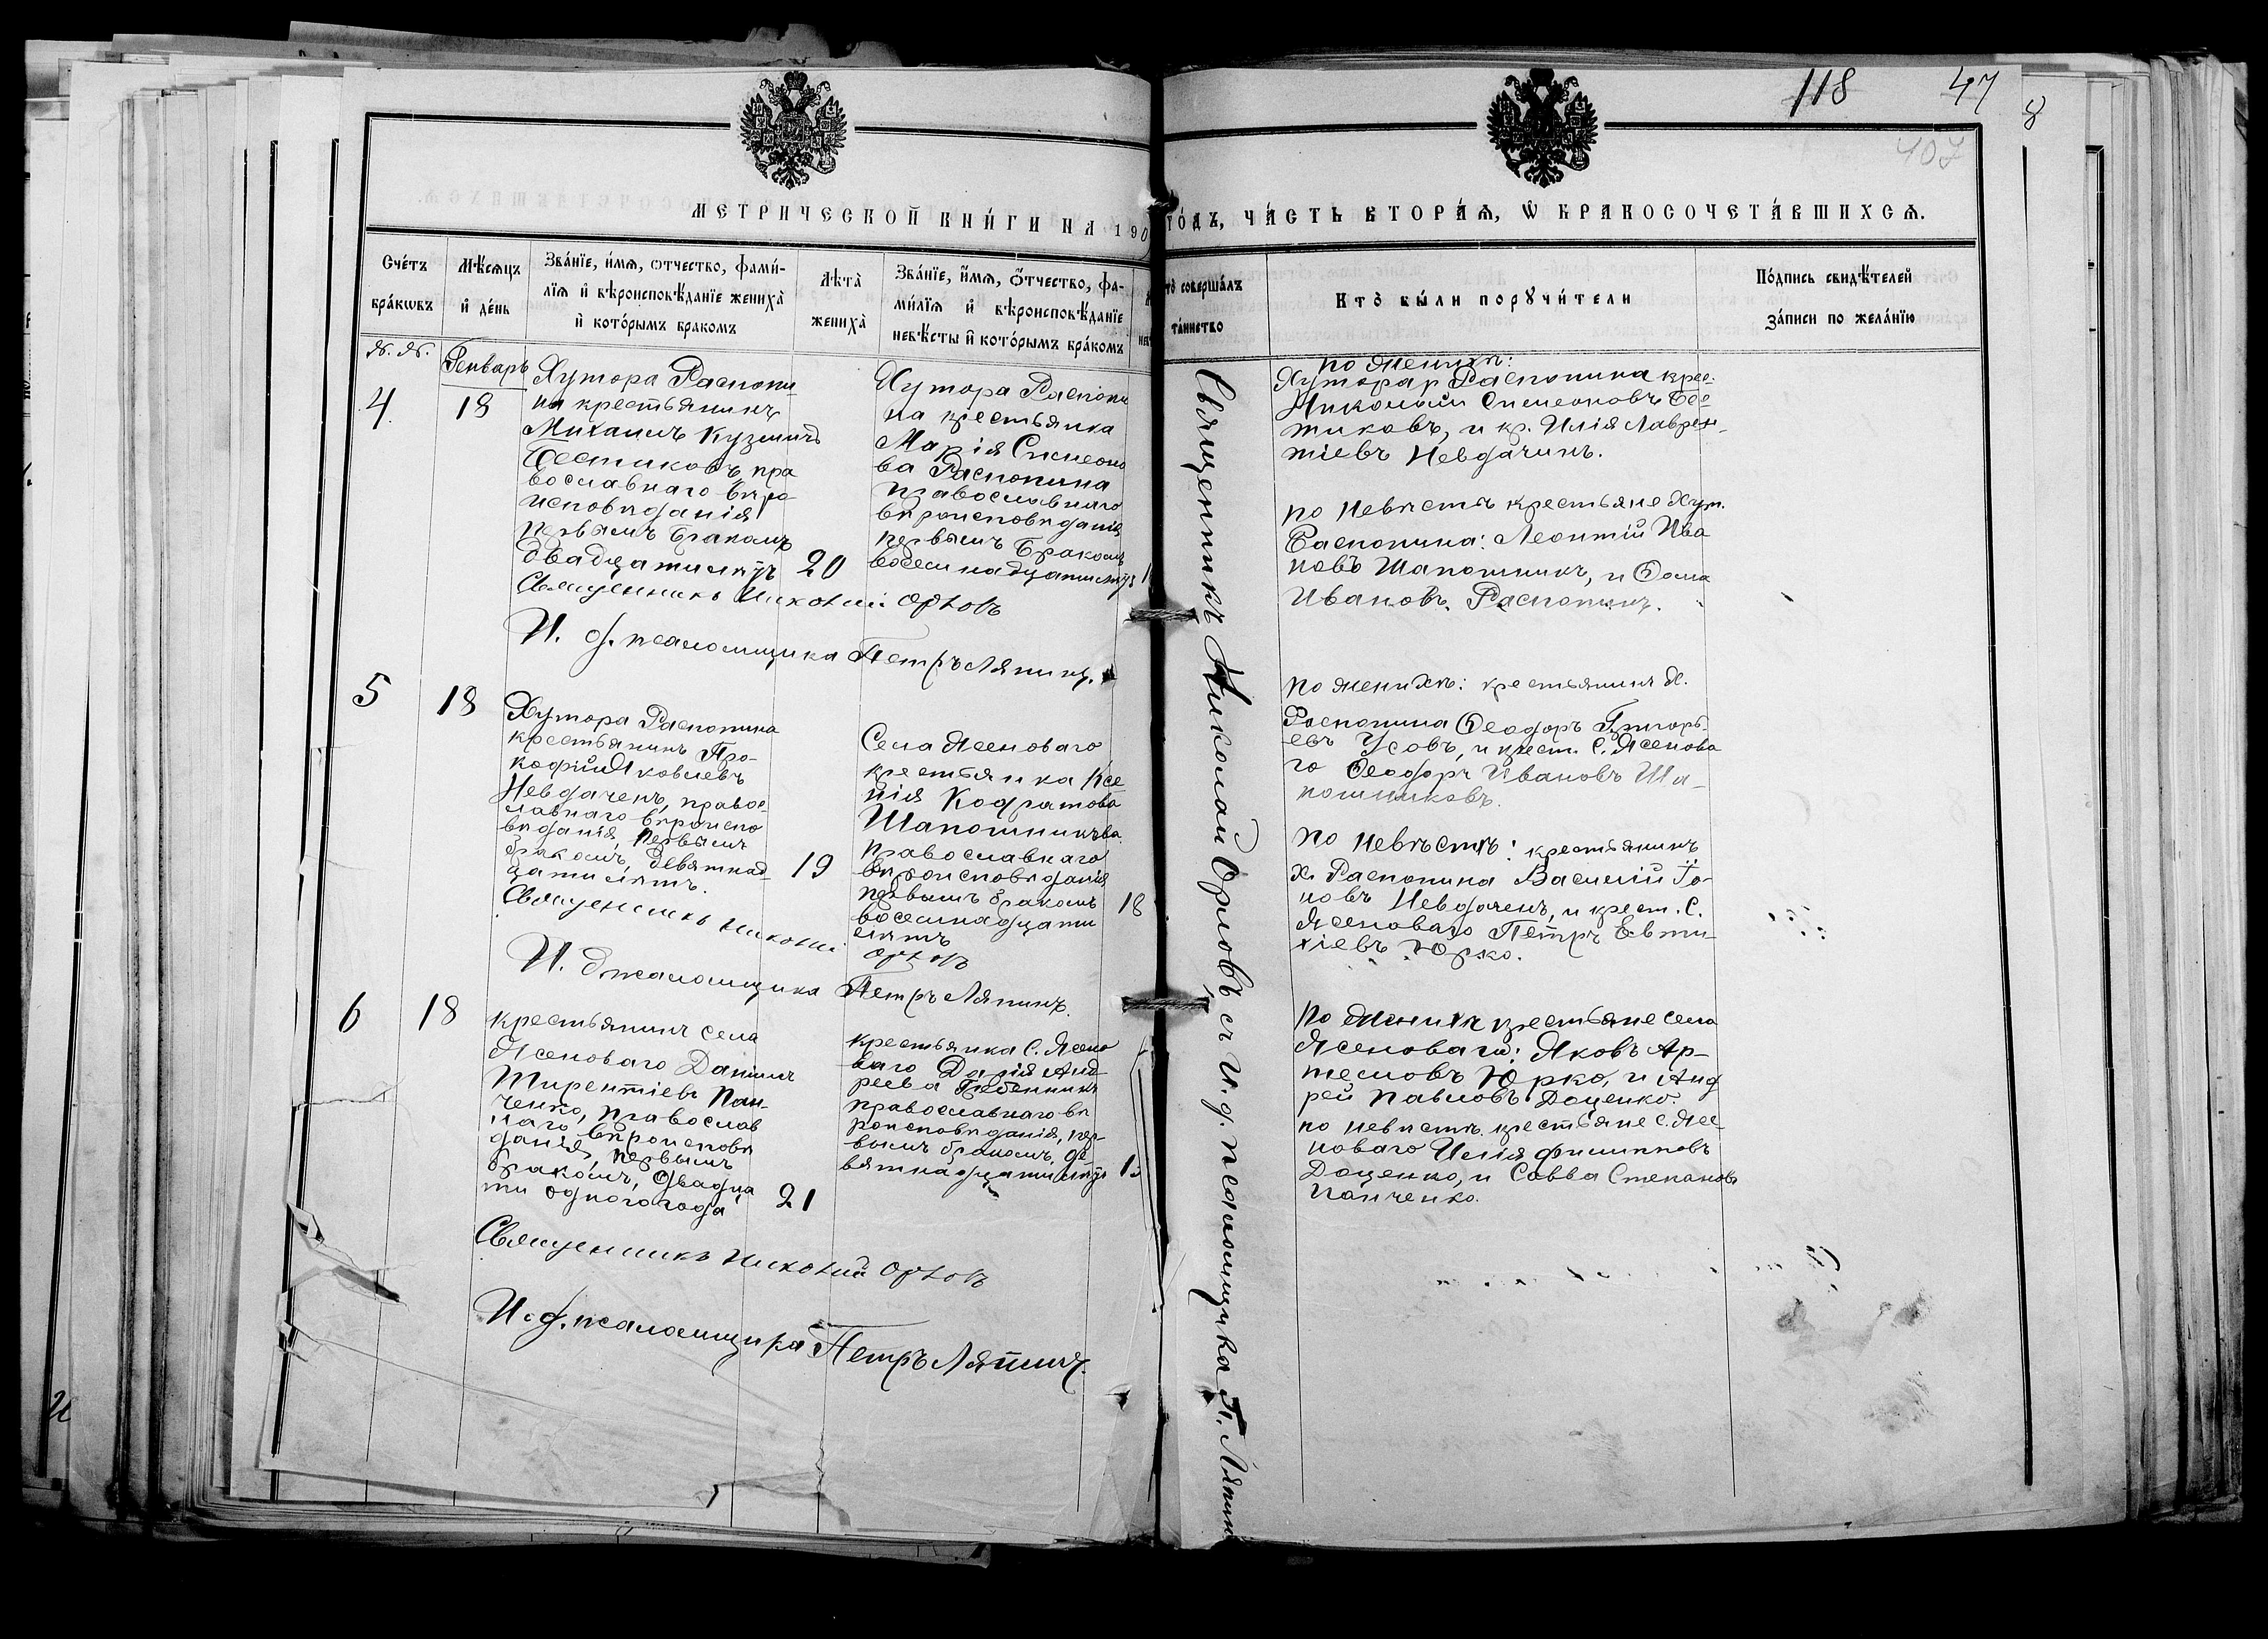 118 47
8
407
МЕТРИЧЕСКОЙ КНИ́ГИ НА 190
ГО́ДЪ, ЧА́СТЬ ВТОРА́Ѧ, Ѽ БРАКОСОЧЕТА́ВШИХСѦ.
Счéтъ
брáкѡвъ
Мѣ́сѧцъ
и҆ дéнь
Звáнїе, и҆́мѧ, ѻтчество, фами́-
лїѧ и҆ вѣроисповѣ́данїе женихà
и҆ котóрымъ бракомъ
Лѣтà
женихà
Звáнїе, и҆́мѧ, ѻ҆́тчество, фа-
ми́лїѧ и҆ вѣроисповѣ́данїе
невѣ́сты и҆ котóрымъ брáкомъ
совершáлъ
тáинство
Ктò бы́ли порꙋчи́тели
Пóдпись свидѣ́телей
зáписи по желáнїю
№. №.
Генварь
4
18
Хутора Распопи-
на крестьянинъ
Михаилъ Кузмичъ
Бестиковъ, пра
вославнаго вѣро-
исповѣданія
первымъ бракомъ
двадцати лѣтъ
20
Хутора Распопи
на крестьянка
Марія Симеоно
ва Распопина
православнаго
вѣроисповѣданія
первымъ бракомъ
восемнадцати лѣтъ
Священникъ Николай Орловъ
И. д. псаломщика Петръ Ляпинъ.
по женихѣ:
Хутора Распопина крес.
Николай Симеоновъ Бес-
тиковъ, и кр. Илія Лаврен-
тіевъ Невдачинъ.
по невѣстѣ крестьяне хут.
Распопина: Леонтій Ива
новъ Шапошникъ, и Ѳома
Ивановъ Распопинъ.
5
18
Хутора Распопина
крестьянинъ Про-
кофій Яковлевъ
Невдаченъ, правос
лавнаго вѣроиспо
вѣданія, первымъ
бракомъ, девятнад-
цати лѣтъ.
19
Села Ясеноваго
крестьянка Ксе
нія Кодратова
Шапошникова
православнаго
вѣроисповѣданія
первымъ бракомъ
восемнадцати
лѣтъ
18
Священникъ Николай Орловъ
И. д псаломщика Петръ Ляпинъ.
по женихѣ: крестьянинъ х.
Распопина Ѳеодоръ Григорь-
евъ Усовъ, и крест. С. Ясенова
го Ѳеодоръ Ивановъ Ша-
пошниковъ.
по невѣстѣ: крестьянинъ
х. Распопина Василій Іо-
новъ Невдаченъ, и крест. С.
Ясеноваго Петръ Евти-
хіевъ Юрко.
6
18
крестьянинъ села
Ясеноваго Даніилъ
Тирентіевъ Пан-
ченко, православ
наго вѣроисповѣ
данія, первымъ
бракомъ, двадца
ти одного года
21
крестьянка С. Ясено
ваго Дарія Анд-
реева Гребенникъ
православнаго вѣ
роисповѣданія, пер-
вымъ бракомъ, де
вятнадцати лѣтъ
Священникъ Николай Орловъ
И. д. псаломщика Петръ Ляпинъ.
по женихѣ крестьяне села
Ясеноваго: Яковъ Ар-
темовъ Юрко, и Анд
рей Павловъ Доценко.
по невѣстѣ крестьяне С. Ясе-
новаго Илія Филипповъ
Доценко, и Савва Степановъ
Панченко.
Священникъ Николай Орловъ, съ И. д. псаломщика П. Ляпин